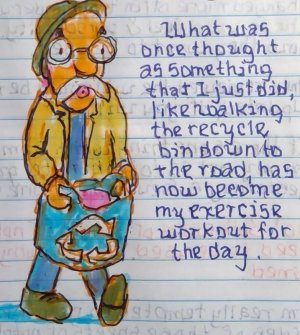 What was
once thought
as something
that I just did,
like walking
the recycle
bin down to
the road, has
now become
my exercise
workout for
the day.